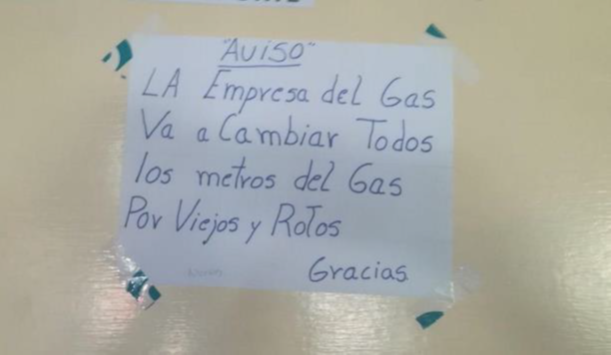 "AUISO"
LA Empresa del Gas
Va a Cambiar Todos
los metros del Gas
Por Viejos y Rotos
Gracias